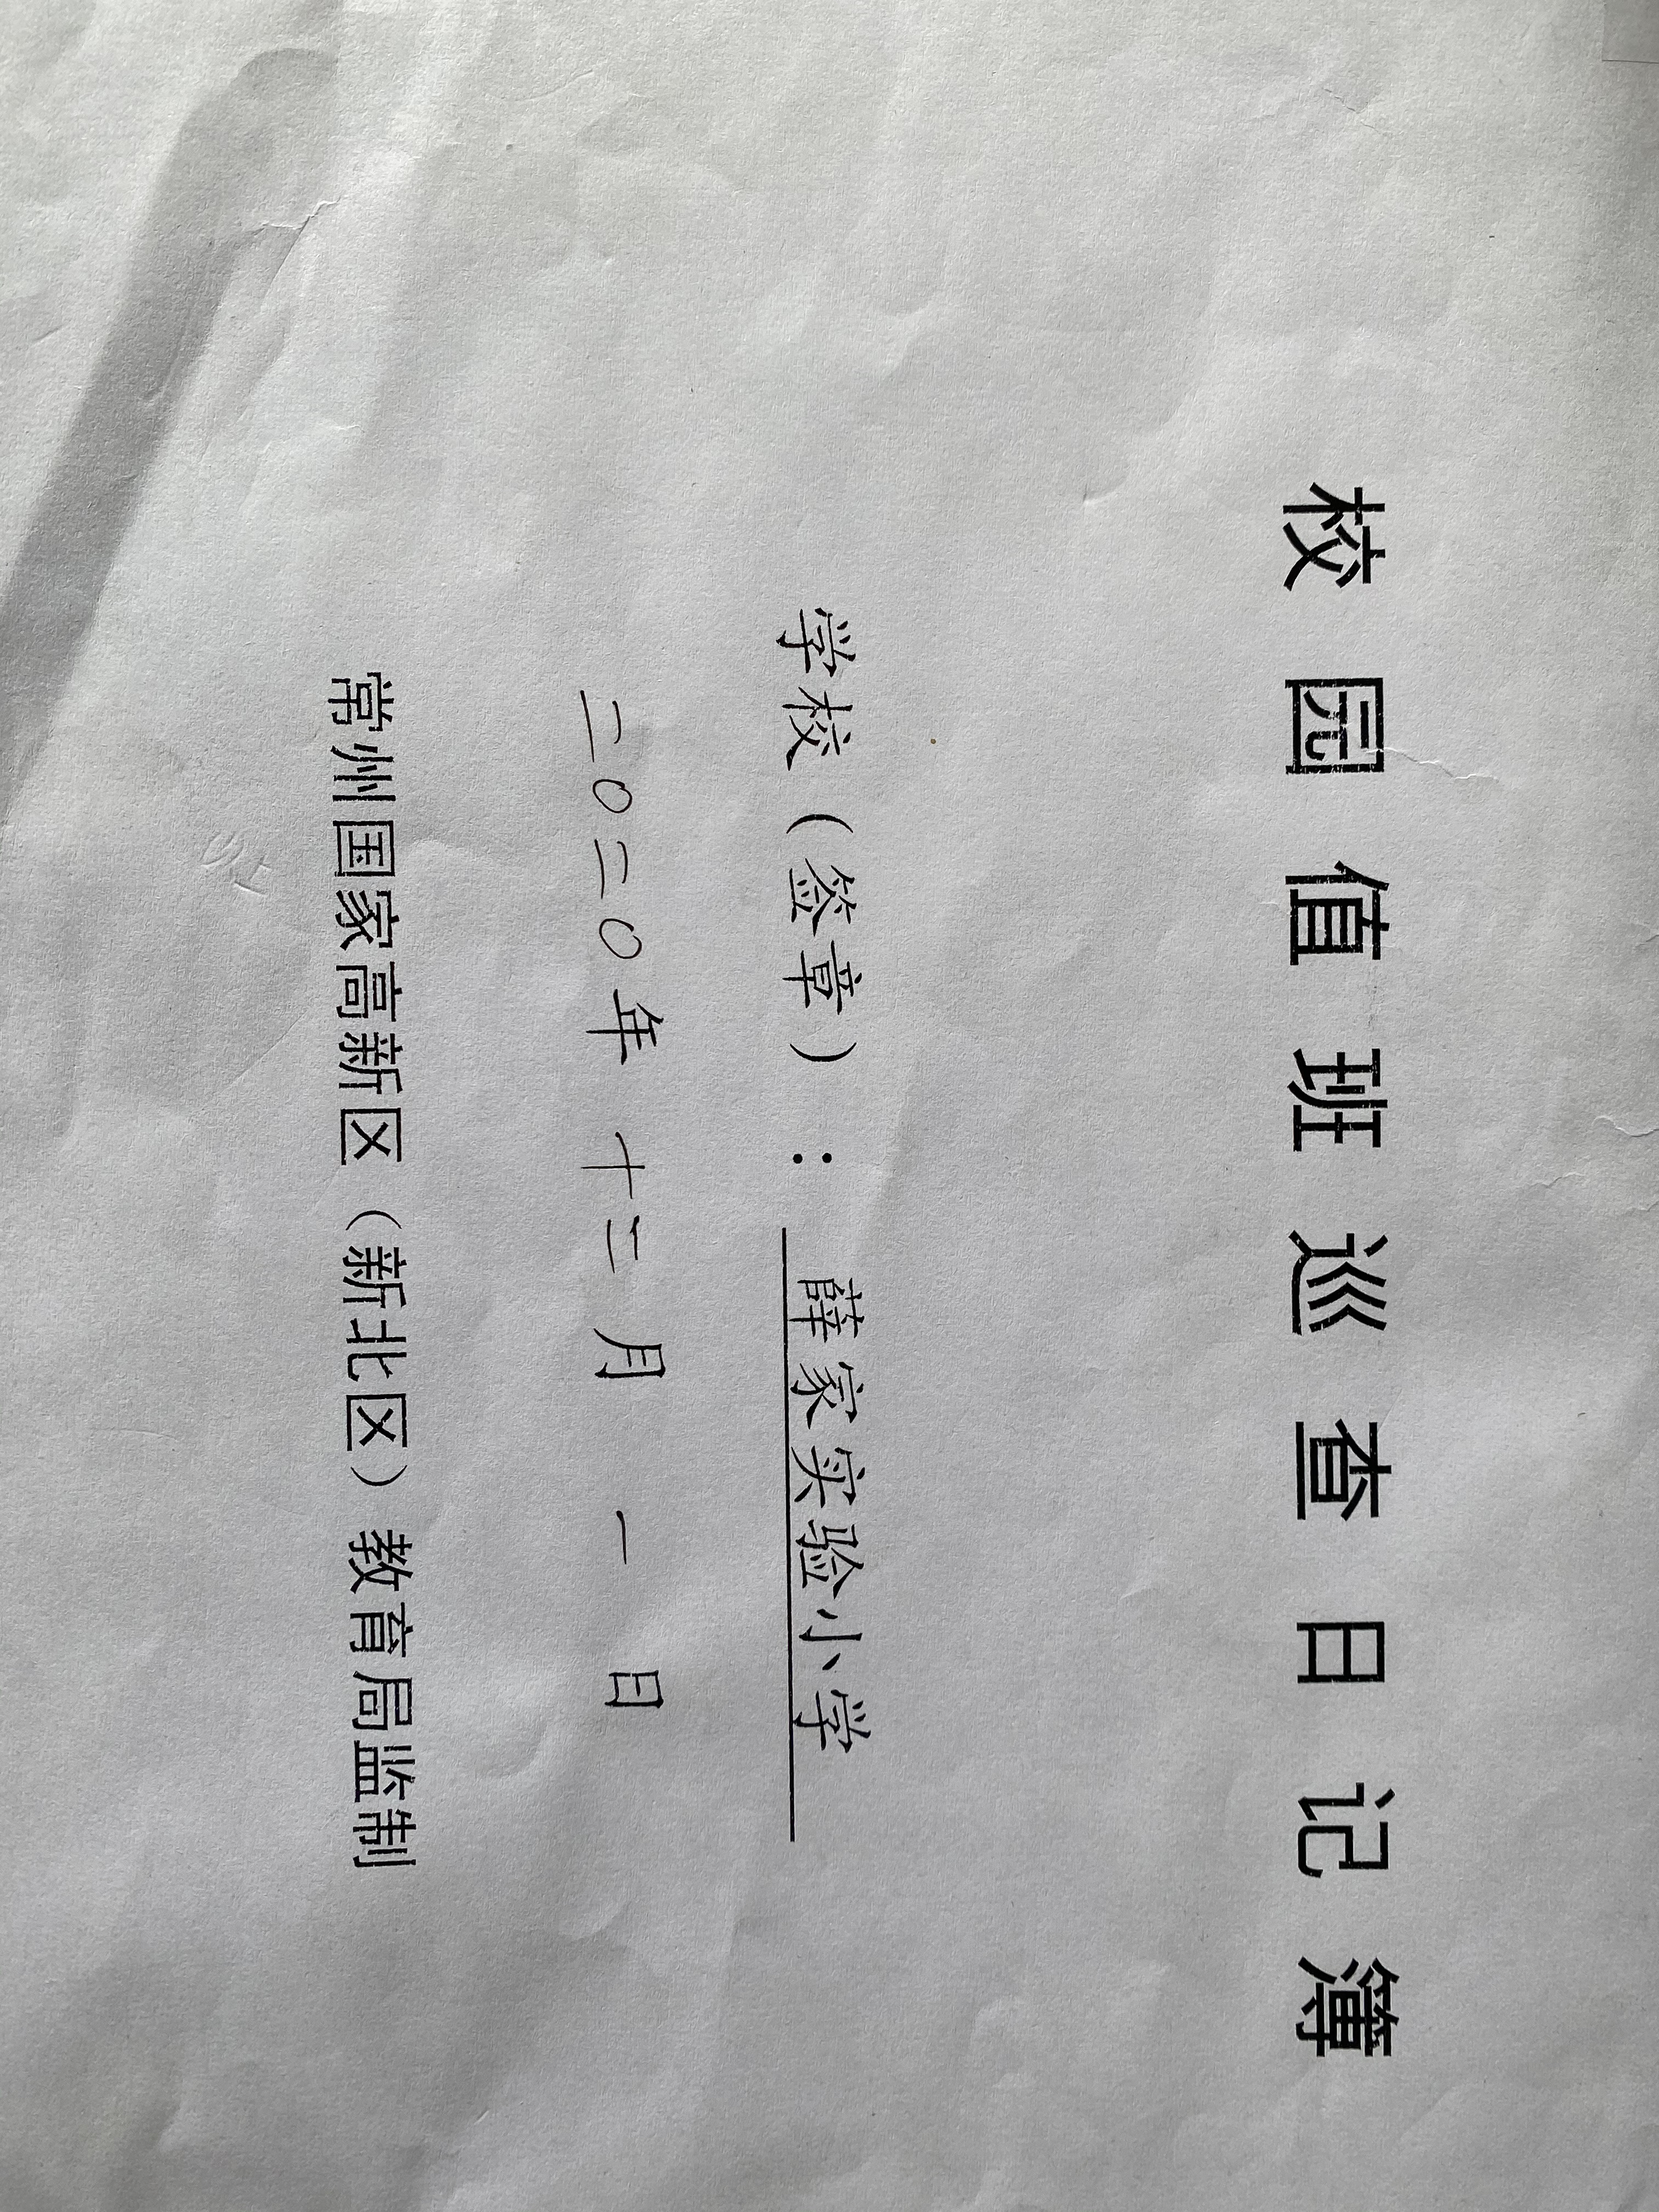 校园值班巡查日记簿
学校（签章）：薛家实验小学
二〇二〇年十二月一日
常州国家高新区（新北区）教育局监制